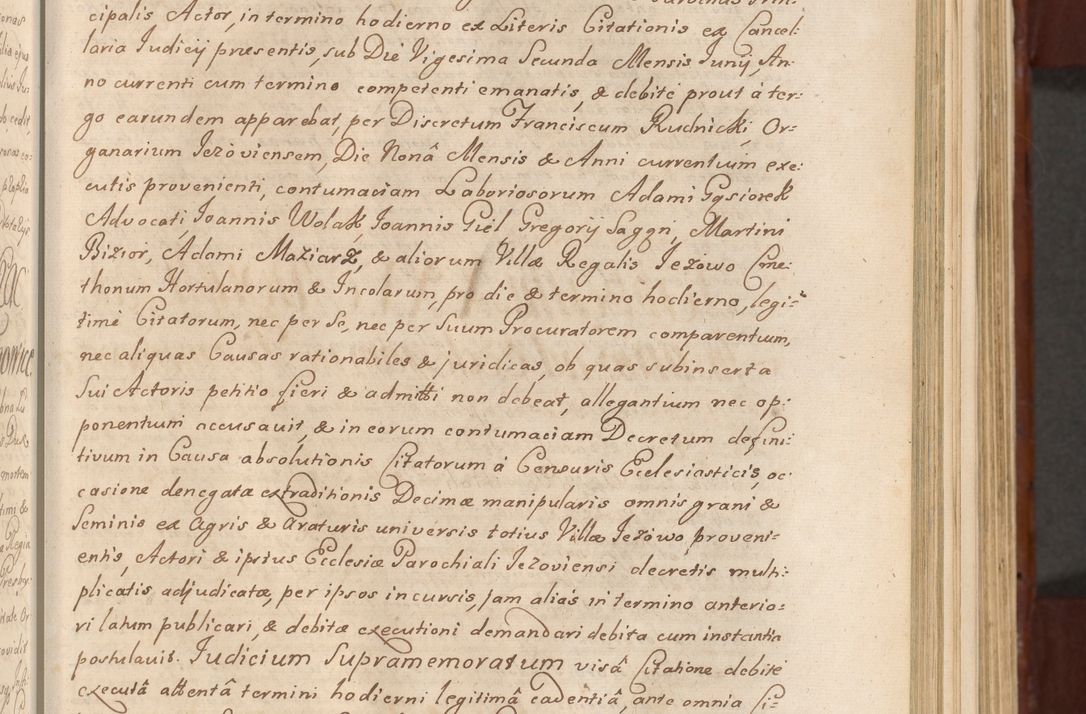 cipalis Actor, in termino hodierno ex Literis Citationis ex Cancel:
laria Iudicij præsentis, sub Die Vigesima Secunda Mensis Iunij, An:
no currenti cum termino competenti emanatis, & debite prout à ter:
go earundem apparebat, per Discretum Franciscum Rudnicki Or:
ganarium Ieżoviensem, Die Nonâ Mensis & Anni currentium exe:
cutis provenienti, contumaciam Laboriosorum Adami Gąsiorek
Advocati, Ioannis Wolak, Ioannis Giel Gregorij Martini
Biżior, Adami Maziarz, & aliorum Villæ Regalis Ieżowo Cme:
thonum Hortulanorum & Incolarum, pro die & termino hodierno, legi:
timè Citatorum, nec per Se, nec per Suum Procuratorem comparentium,
nec aliquas Causas rationabiles & juridicas, ob quas subinserta
Sui Actoris petitio fieri & admitti non debeat, allegantium nec op:
ponentium accusavit, & in eorum contumaciam Decretum defini:
tivum in Causa absolutionis Citatorum à Censuris Ecclesiasticis, oc:
casione denegatæ extraditionis Decimæ manipularis omnis grani &
Seminis ex Agris & Araturis universis totius Villæ Ieżowo proveni:
entis, Actori & ipsius Ecclesiæ Parochiali Ieżoviensi decretis multi:
plicatis adjudicatæ, per ipsos incursis, jam aliàs in termino anterio:
ri latum publicari, & debitæ executioni demandari debita cum instantia
postulavit. Iudicium Supramemoratum visâ Citatione debitè
executâ attentâ termini hodierni legitimâ cadentiâ, ante omnia Ci: